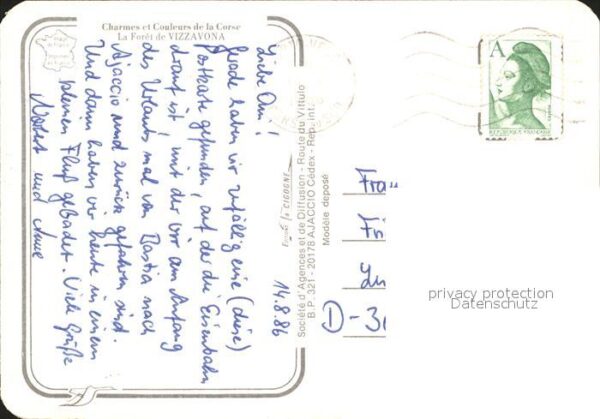 Charmes et Couleurs de la Corse
La Forêt de VIZZAVONA
14.8.86
Liebe Omi!
Gerade haben wir zufällig eine (diese)
Postkarte gefunden, auf der die Eisenbahn
drauf ist, mit der wir am Anfang
des Urlaubs mal von Bastia nach
Ajaccio und zurück gefahren sind.
Und dann haben wir heute in einem
kleinen Fluß gebadet. Viele Grüße
und Anne
Société d'Agences et de Diffusion - Route du Vittulo
B.P. 321 - 20178 AJACCIO Cédex - Rep. int.
Modèle déposé
A
REPUBLIQUE FRANÇAISE
D-3
privacy protection
Datenschutz